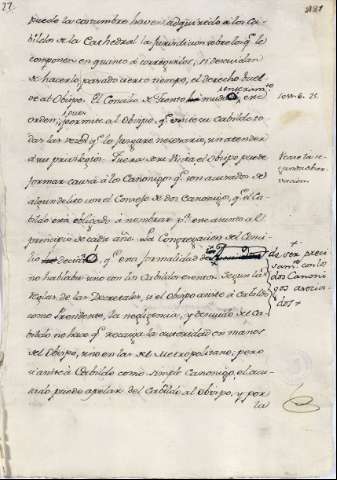 27.
puede la costumbre haver adquirido a los Ca-
bildos de la Cathedral la jurisdiccion sobre los qe. le
componen en quanto á corregirlos, si descuidan
de hacerlo, pasado cierto tiempo, el derecho buel-
ve al Obispo. El Concilio de Trento mudó enteramte. este
orden, pues permite al Obispo, qe. visite su Cabildo to-
das las veces qe. lo juzgare necesario, sin atender
á sus privilegios. Fuera de su Visita el Obispo puede
formar causa á los Canonigos qe. son acusados de
algun delito con el Consejo de dos Canonigos, qe. el Ca-
bildo está obligado á nombrar pa. este asunto al
principio de cada año. La Congregacion del Conci-
lio decidió, qe. esta formalidad
no hablaba sino con los Cabildos esentos. Segun las
reglas de las Decretales, si el Obispo asiste á Cabildo
como Presidente, la negligencia, y descuido del Ca-
bildo no hace qe. recaiga la autoridad en manos
del Obispo, sino en las del Metropolitano; pero
si asiste á Cabildo como simple Canonigo, el acu-
sado puede apelar del Cabildo al Obispo, y por
la
sess. 6. 25.
de ser preci-
samte. con los
dos Canoni-
gos asocia-
dos